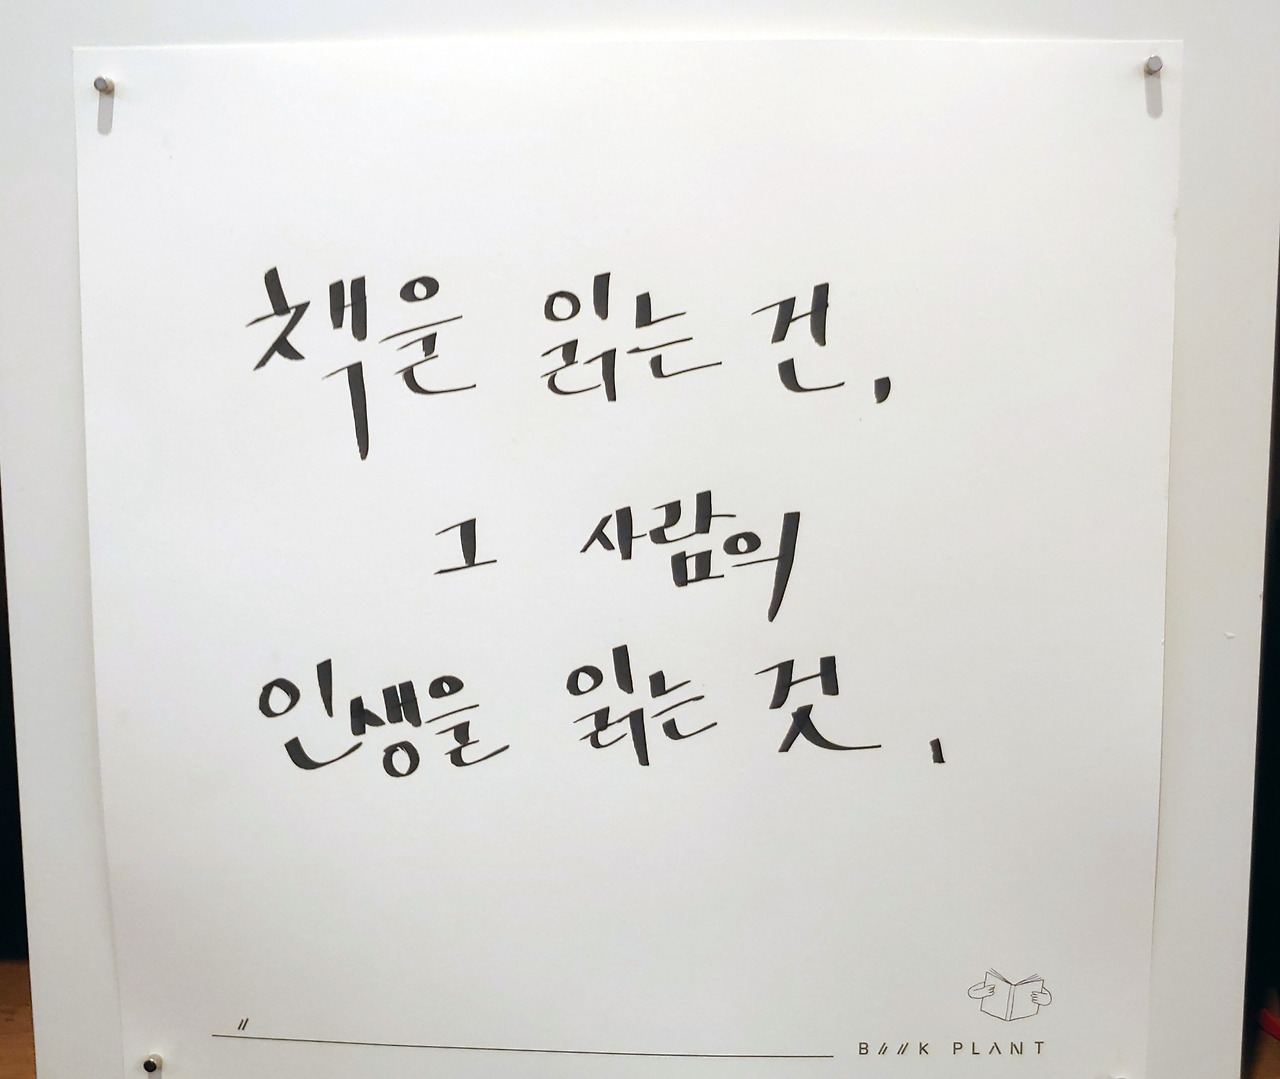 책을 읽는 건,
그 사람의
인생을 읽는 것.
〃
B〃〃K PLANT